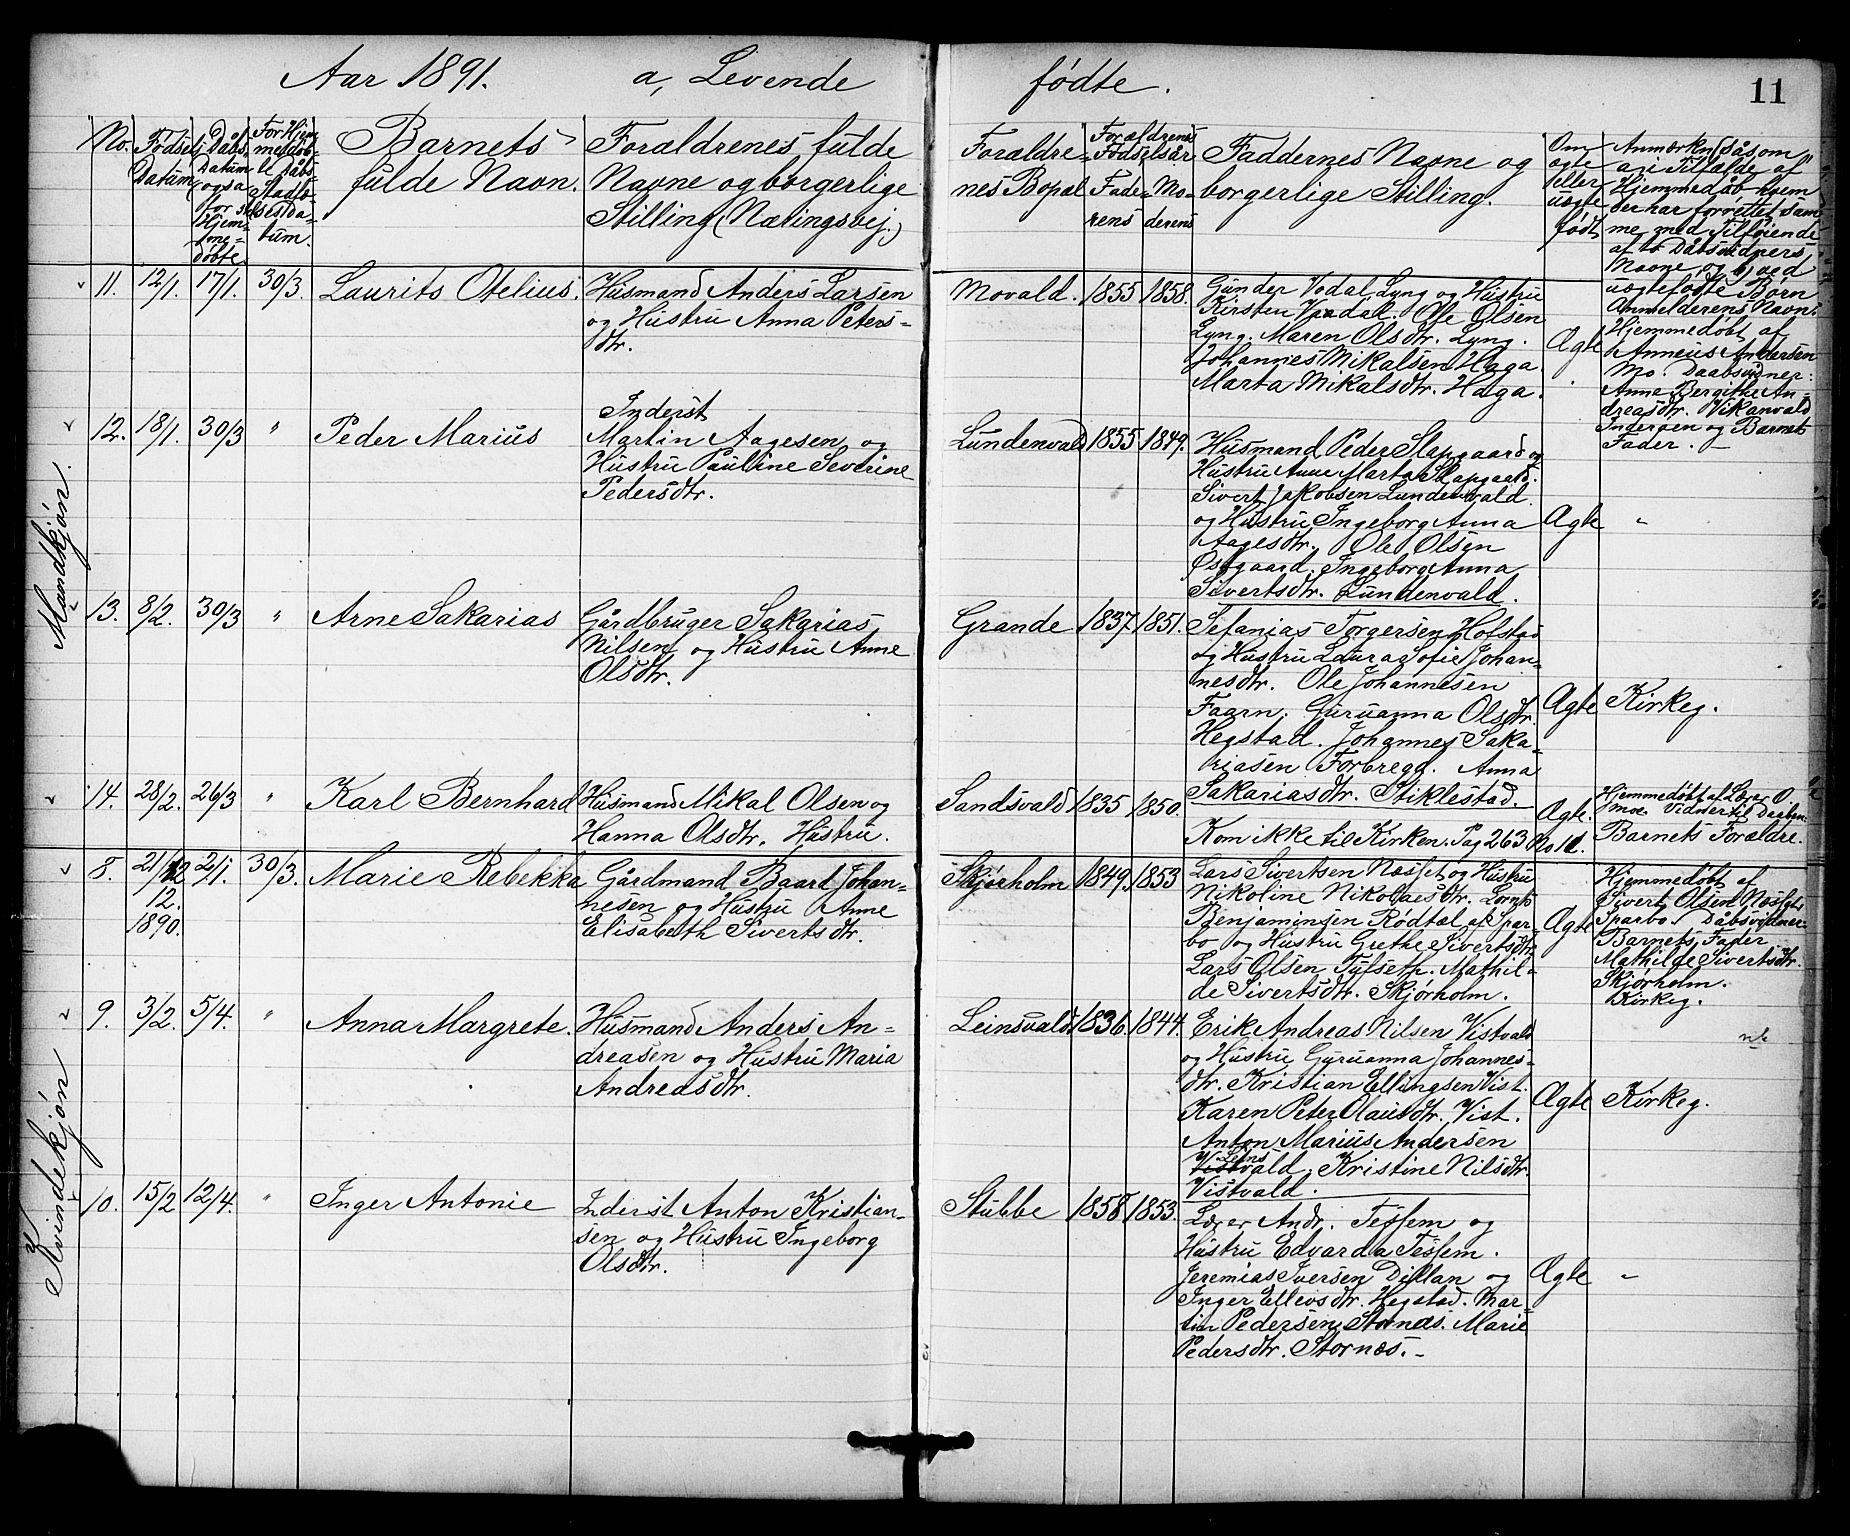 Aar 1891. a, Levende fødte. 11
No.
Fødsels Datum
Dåbs Datum også for Hjemmedøbte
For Hjemmedøbte Dåbs Stadfæstelses Datum.
Barnets
fulde Navn.
Forældrenes fulde
Navne og borgerlige
Stilling (Næringsvej.)
Forældre-
nes Bopæl
Forældrenes
Fødselsår
Fade- Mo-
rens derens
Faddernes Navne og
borgerlige Stilling.
Om
ægte
eller
uægte
født
Anmærkn. såsom
a, i Tilfælde af
Hjemmedåb hvem
der har forrettet sam
me med Tilføiende
af to Dåbsvidners
Navne, og b, ved
uægtefødte Børn
Anmelderens Navn.
Mandkjøn.
11. 12/1. 17/1. 30/3. Laurits Otelius.
Husmand Anders Larsen
og Hustru Anna Peters-
dtr.
Movald. 1855 1858.
Gunder Vodal Lyng og Hustru
Kirsten Vodal. Ole Olsen
Lyng. Maren Olsdtr. Lyng.
Johannes Mikalsen Haga.
Marta Mikalsdtr. Haga.
Ægte
Hjemmedøbt af
Anneus Andersen
Mo. Daabsvidner:
Anne Bergithe An-
dreasdtr. Vikanvald
Inderøen og Barnets
Fader.
12. 18/1. 30/3 " Peder Marius
Inderst
Martin Aagesen og
Hustru Pauline Severine
Pedersdtr.
Lundenvald 1855 1849.
Husmand Peder Slapgaard og
Hustru Anne Marta Slapgaard.
Sivert Jakobsen Lundenvald
og Hustru Ingeborg Anna
Aagesdtr. Ole Olsen
Østgaard. Ingeborg Anna
Sivertsdtr. Lundenvald.
Ægte "
13. 8/2. 30/3 " Arne Sakarias
Gårdbruger Sakarias
Nilsen og Hustru Anne
Olsdtr.
Grande 1837. 1851.
Sefanias Torgersen Hofstad
og Hustru Laura Sofie Johan-
nesdtr. Ole Johannesen
Faarn. Guruanna Olsdtr.
Hegstad. Johannes Saka-
riasen Forbregd. Anna
Sakariasdtr. Stiklestad.
Ægte Kirkeg.
14. 28/2. 26/3 " Karl Bernhard
Husmand Mikal Olsen og
Hanna Olsdtr. Hustru.
Sandsvald 1835 1850.
Kom ikke til Kirken. Pag 263 No 11.
Ægte.
Hjemmedøbt af Lærer O.
Moe Vidner til Daaben
Barnets Forældre.
Kvindekjøn
8. 21/12 2/1. 30/3. Marie Rebekka
12.
1890.
Gårdmand Baard Johan-
nesen og Hustru Anne
Elisabeth Sivertsdtr.
Skjørholm 1849. 1853
Lars Sivertsen Næsset og Hustru
Nikoline Nikolaisdtr. Lornts
Benjaminsen Rødtal af Spar-
bo og Hustru Grethe Sivertsdtr.
Lars Olsen Tufseth. Mathil-
de Sivertsdtr. Skjørholm.
Ægte
Hjemmedøbt af
Sivert Olsen Næsset
Sparbo. Dåbsvidner
Barnets Fader
Mathilde Sivertsdtr.
Skjørholm.
Kirkeg.
9. 3/2. 5/4. " Anna Margrete.
Husmand Anders An-
dreasen og Hustru Maria
Andreasdtr.
Leinsvald. 1836. 1844.
Erik Andreas Nilsen Vistvald
og Hustru Guruanna Johannes-
dtr. Kristian Ellingsen Vist.
Karen Peter Olausdtr. Vist.
Anton Marius Andersen
Leinsvald. Kristine Nilsdtr.
Vistvald.
Ægte Kirkeg.
10. 15/2 12/4. " Inger Antonie
Inderst Anton Kristian-
sen og Hustru Ingeborg
Olsdtr.
Stubbe 1858 1853.
Lærer Andr. Tessem og
Hustru Edvarda Tessem.
Jeremias Iversen Dillan og
Inger Ellevsdtr. Hegstad. Mar-
tin Pedersen Stornæs. Marie
Pedersdtr. Stornæs.
Ægte "